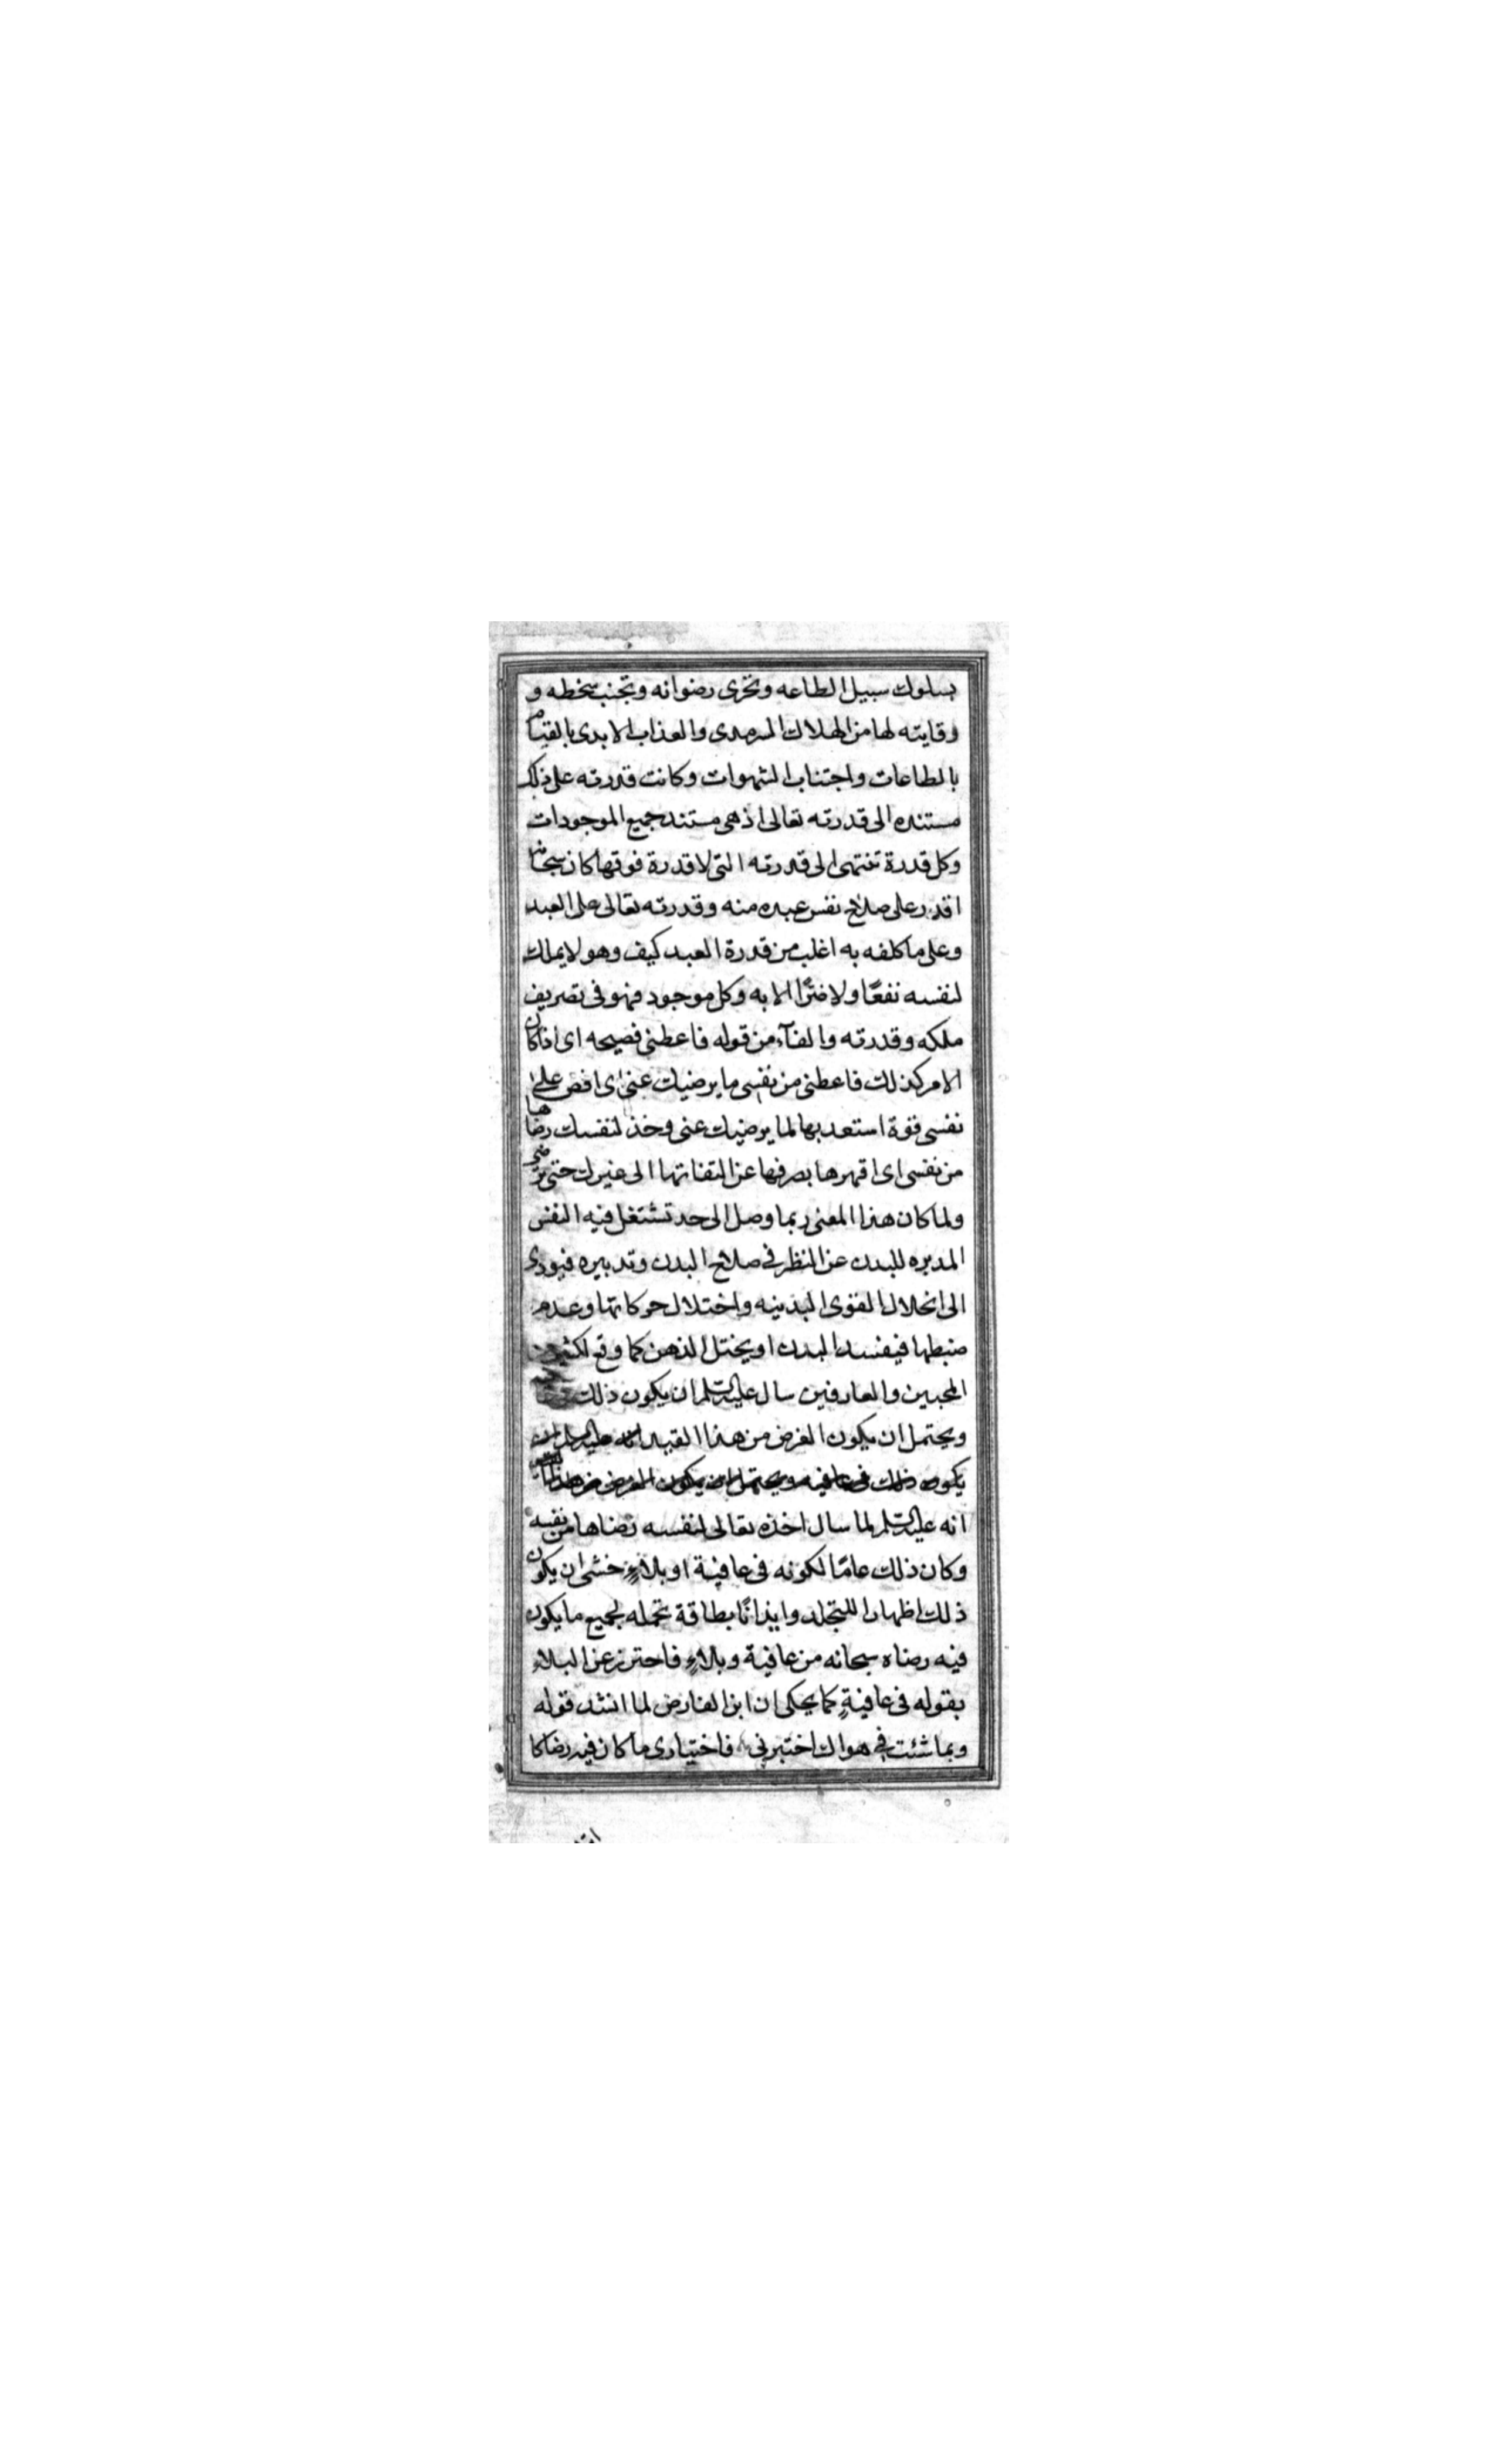 بسلوك سبيل الطاعه وتحرى رضوانه وتجنب سخطه و
وقايته لها من الهلاك السرمدى والعذاب الابدى بالقيام
بالطاعات واجتناب الشهوات وكانت قدرته على ذلك
مستنده الى قدرته تعالى اذ هى مستند جميع الموجودات
وكل قدرة تنتهى الى قدرته التى لا قدرة فوقها كان سبحانه
اقدر على صلاح نفس عبده منه وقدرته تعالى على العبد
وعلى ما كلفه به اغلب من قدرة العبد كيف وهو لا يملك
لنفسه نفعًا ولا ضرًا الا به وكل موجود فهو فى تصريف
ملكه وقدرته والفآء من قوله فاعطنى فصيحه اى اذا كان
الامر كذلك فاعطنى من نفسى ما يرضيك عنى اى افض على
نفسى قوة استعد بها لما يرضيك عنى وخذ لنفسك رضاها
من نفسى اى اقهرها بصرفها عن التفاتها الى غيرك حتى ترضى
ولما كان هذا المعنى ربما وصل الى حد تشتغل فيه النفس
المدبره للبدن عن النظر فى صلاح البدن وتدبيره فيودى
الى انحلال القوى البدنيه واختلال حركاتها وعدم
ضبطها فيفسد البدن او يختل الذهن كما وقع لكثير من
المحبين والعارفين سال عليه السلم ان يكون ذلك
ويحتمل ان يكون الغرض من هذا القيد انه عليه السلم ان
يكون ذلك فى عافيه ويحتمل ان يكون الغرض من هذا القيد
انه عليه السلم لما سال اخذه تعالى لنفسه رضاها من نفسه
وكان ذلك عامًا لكونه فى عافية او بلاءٍ خشى ان يكون
ذلك اظهارا للتجلد وايذانًا بطاقة تحمله لجميع ما يكون
فيه رضاه سبحانه من عافية وبلاءٍ فاحترز عن البلاءِ
بقوله فى عافيةٍ كما يحكى ان ابن الفارض لما انشد قوله
وبما شئت فى هواك اختبرنى فاختيارى ما كان فيه رضاكا